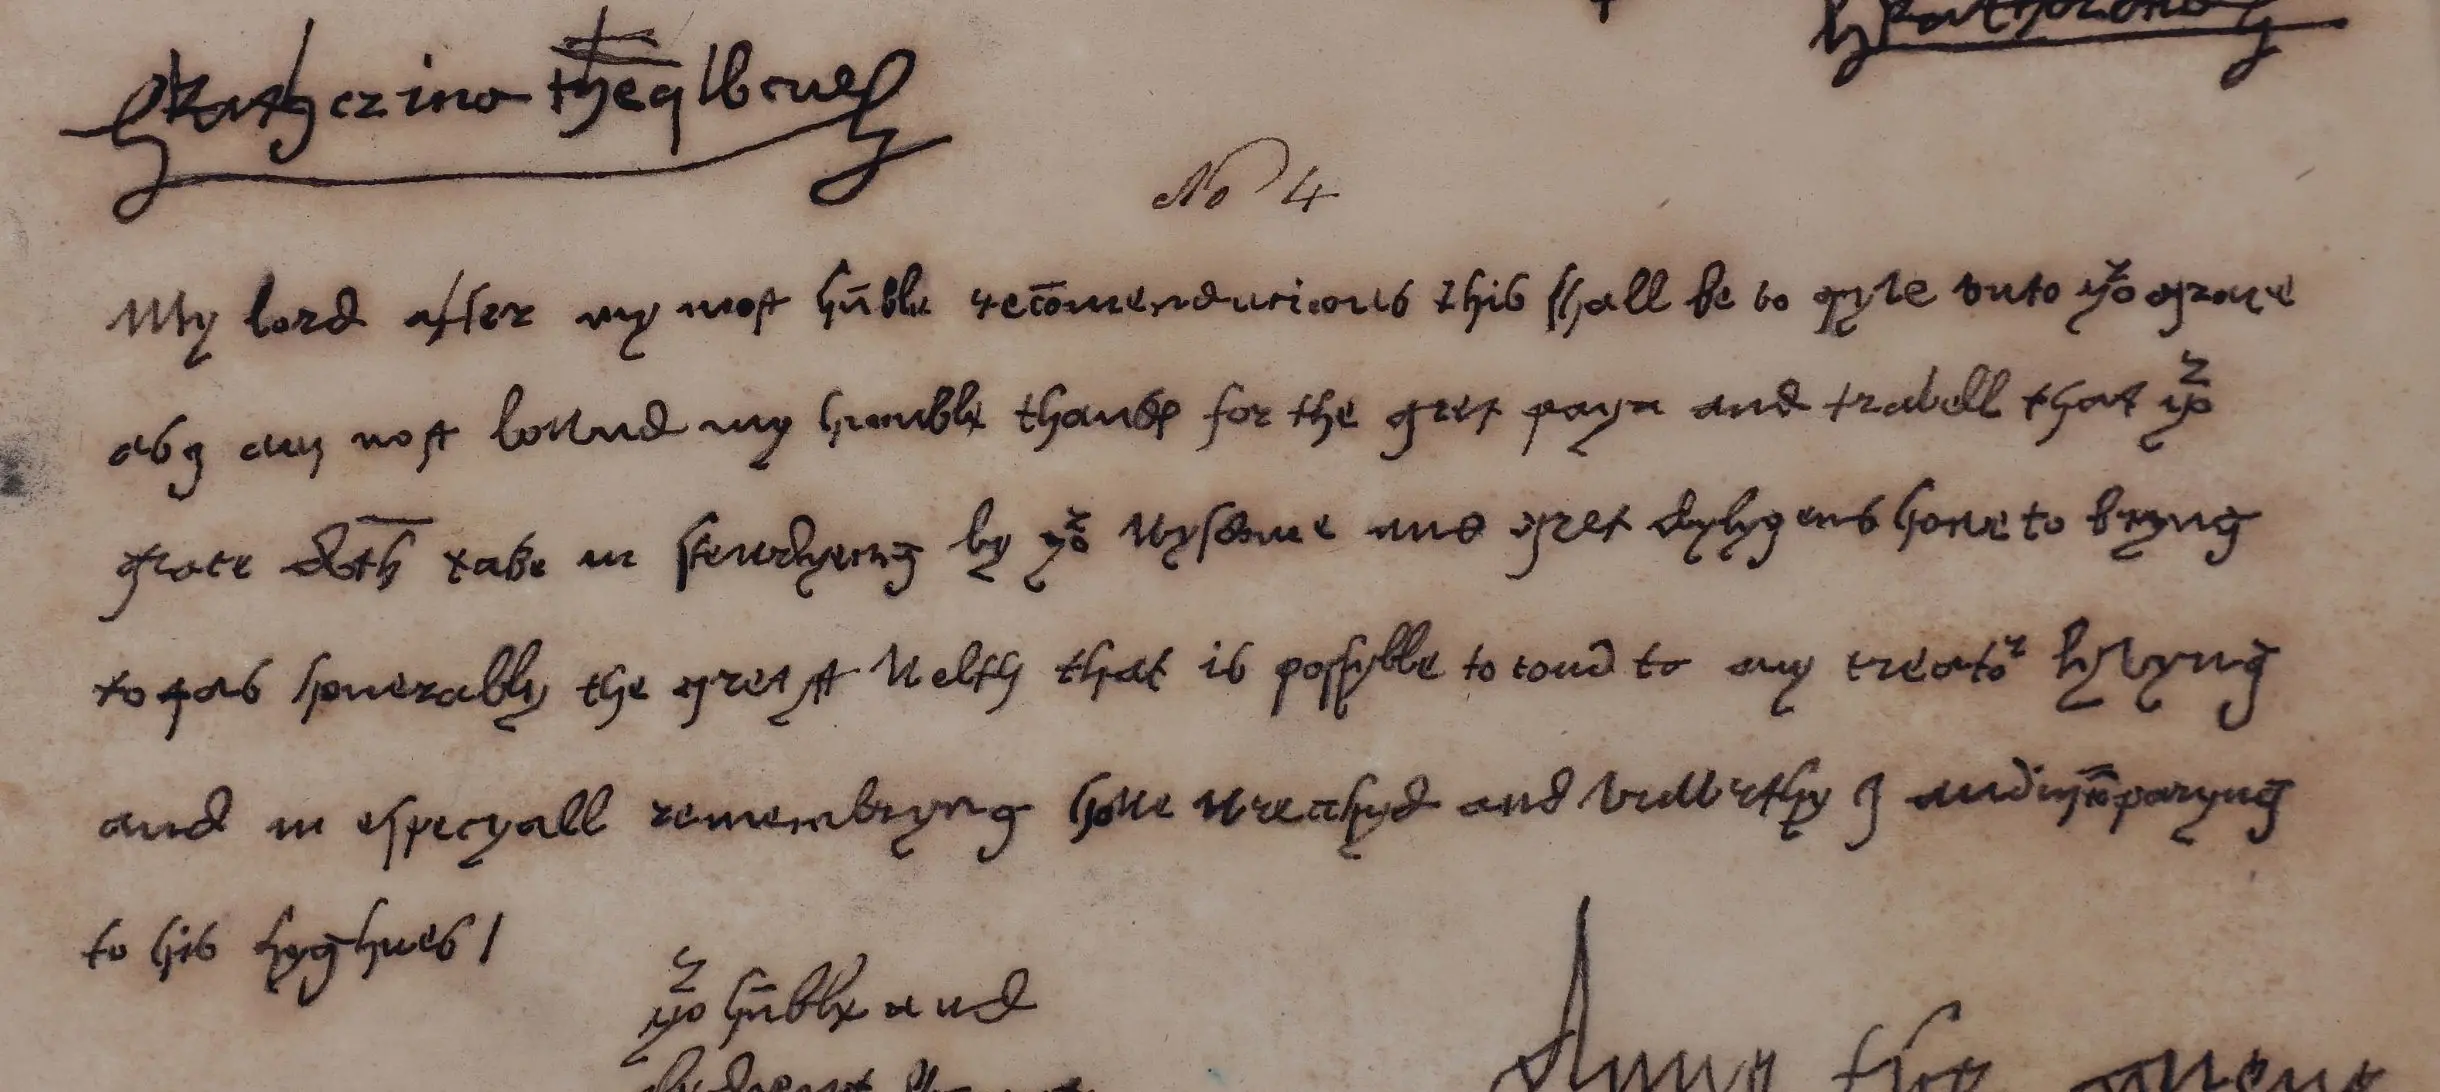 Katherina the quene
No 4
My lord after my most hūble recōmendacions this shall be to gyve vnto yor grace
as I am most bownd my humble thankes for the gret payn and travell that yor
grace doth take in stewdyeng by yor wysdome and gret dylygens howe to bryng
to pas honerably the gretyst welth that is possyble to com to any creator lyvyng
and in especyall remembryng howe wrechyd and vnwrthy I am in cōparyng
to his hyghnes /
yor hūble and
Anne the quene